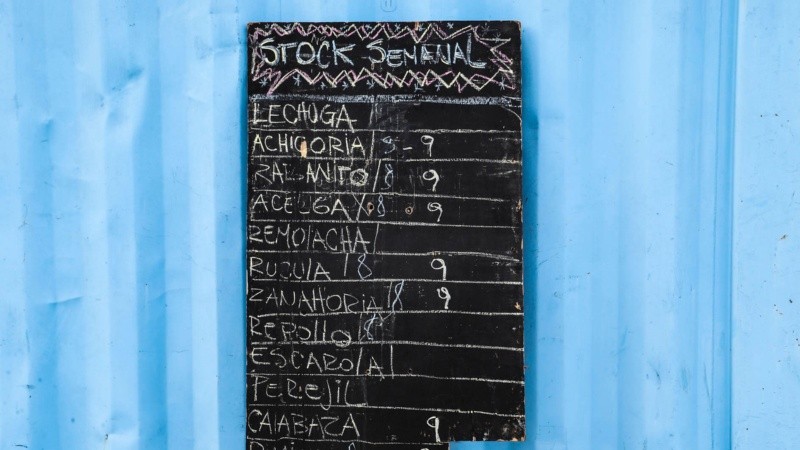 STOCK SEMANAL
LECHUGA
ACHICORIA 9 - 9
RABANITO / 8 9
ACELGA 8 9
REMOLACHA /
RUCULA / 8 9
ZANAHORIA / 8 9
REPOLLO 8
ESCAROLA /
PEREJIL
CALABAZA 9